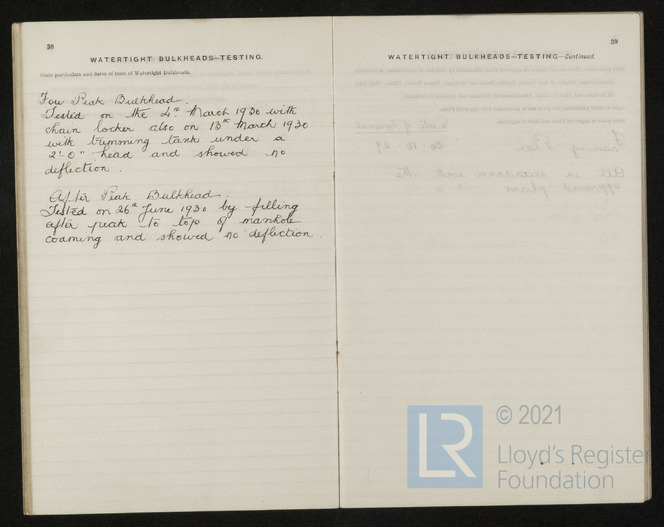 38
WATERTIGHT BULKHEADS—TESTING.
State particulars and dates of tests of Watertight Bulkheads.
Fore Peak Bulkhead.
Tested on the 4th March 1930 with
chain locker also on 13th March 1930
with trimming tank under a
2'-0" head and showed no
deflection.
After Peak Bulkhead.
Tested on 26th June 1930 by filling
after peak to top of manhole
coaming and showed no deflection.
39
WATERTIGHT BULKHEADS—TESTING—Continued.
© 2021
LR
Lloyd's Register
Foundation